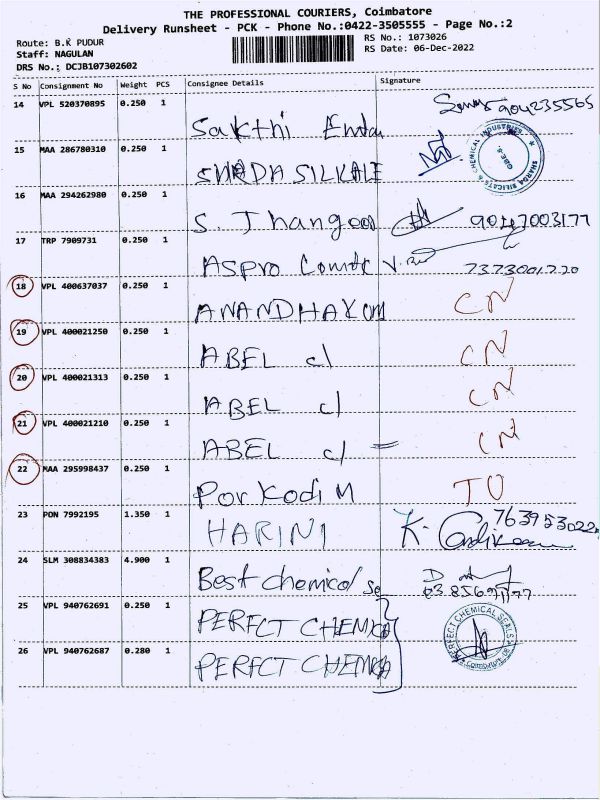 THE PROFESSIONAL COURIERS, Coimbatore
Delivery Runsheet - PCK - Phone No.:0422-3505555 - Page No.:2
Route: B.K PUDUR
Staff: NAGULAN
DRS No.: DCJB107302602
RS No.: 1073026
RS Date: 06-Dec-2022
S No Consignment No Weight PCS Consignee Details Signature
14 VPL 520370895 0.250 1 Sakthi
15 MAA 286780310 0.250 1
CHEMICAL INDUSTRIES
16 MAA 294262980 0.250 1 S. 9047003177
17 TRP 7909731 0.250 1 ASPRO 7373001220
18 VPL 400637037 0.250 1 ANANDHAKUM CN
19 VPL 400021250 0.250 1 ABEL c/ CN
20 VPL 400021313 0.250 1 ABEL c/ CN
21 VPL 400021210 0.250 1 ABEL c/ = CN
22 MAA 295998437 0.250 1 Porkodi M TO
23 PON 7992195 1.350 1 HARINI K. 763953022
24 SLM 308834383 4.900 1 Best chemical Se
25 VPL 940762691 0.250 1 PERFCT CHEMICA
PERFECT CHEMICAL SEALS
26 VPL 940762687 0.280 1 PERFCT CHEMICA